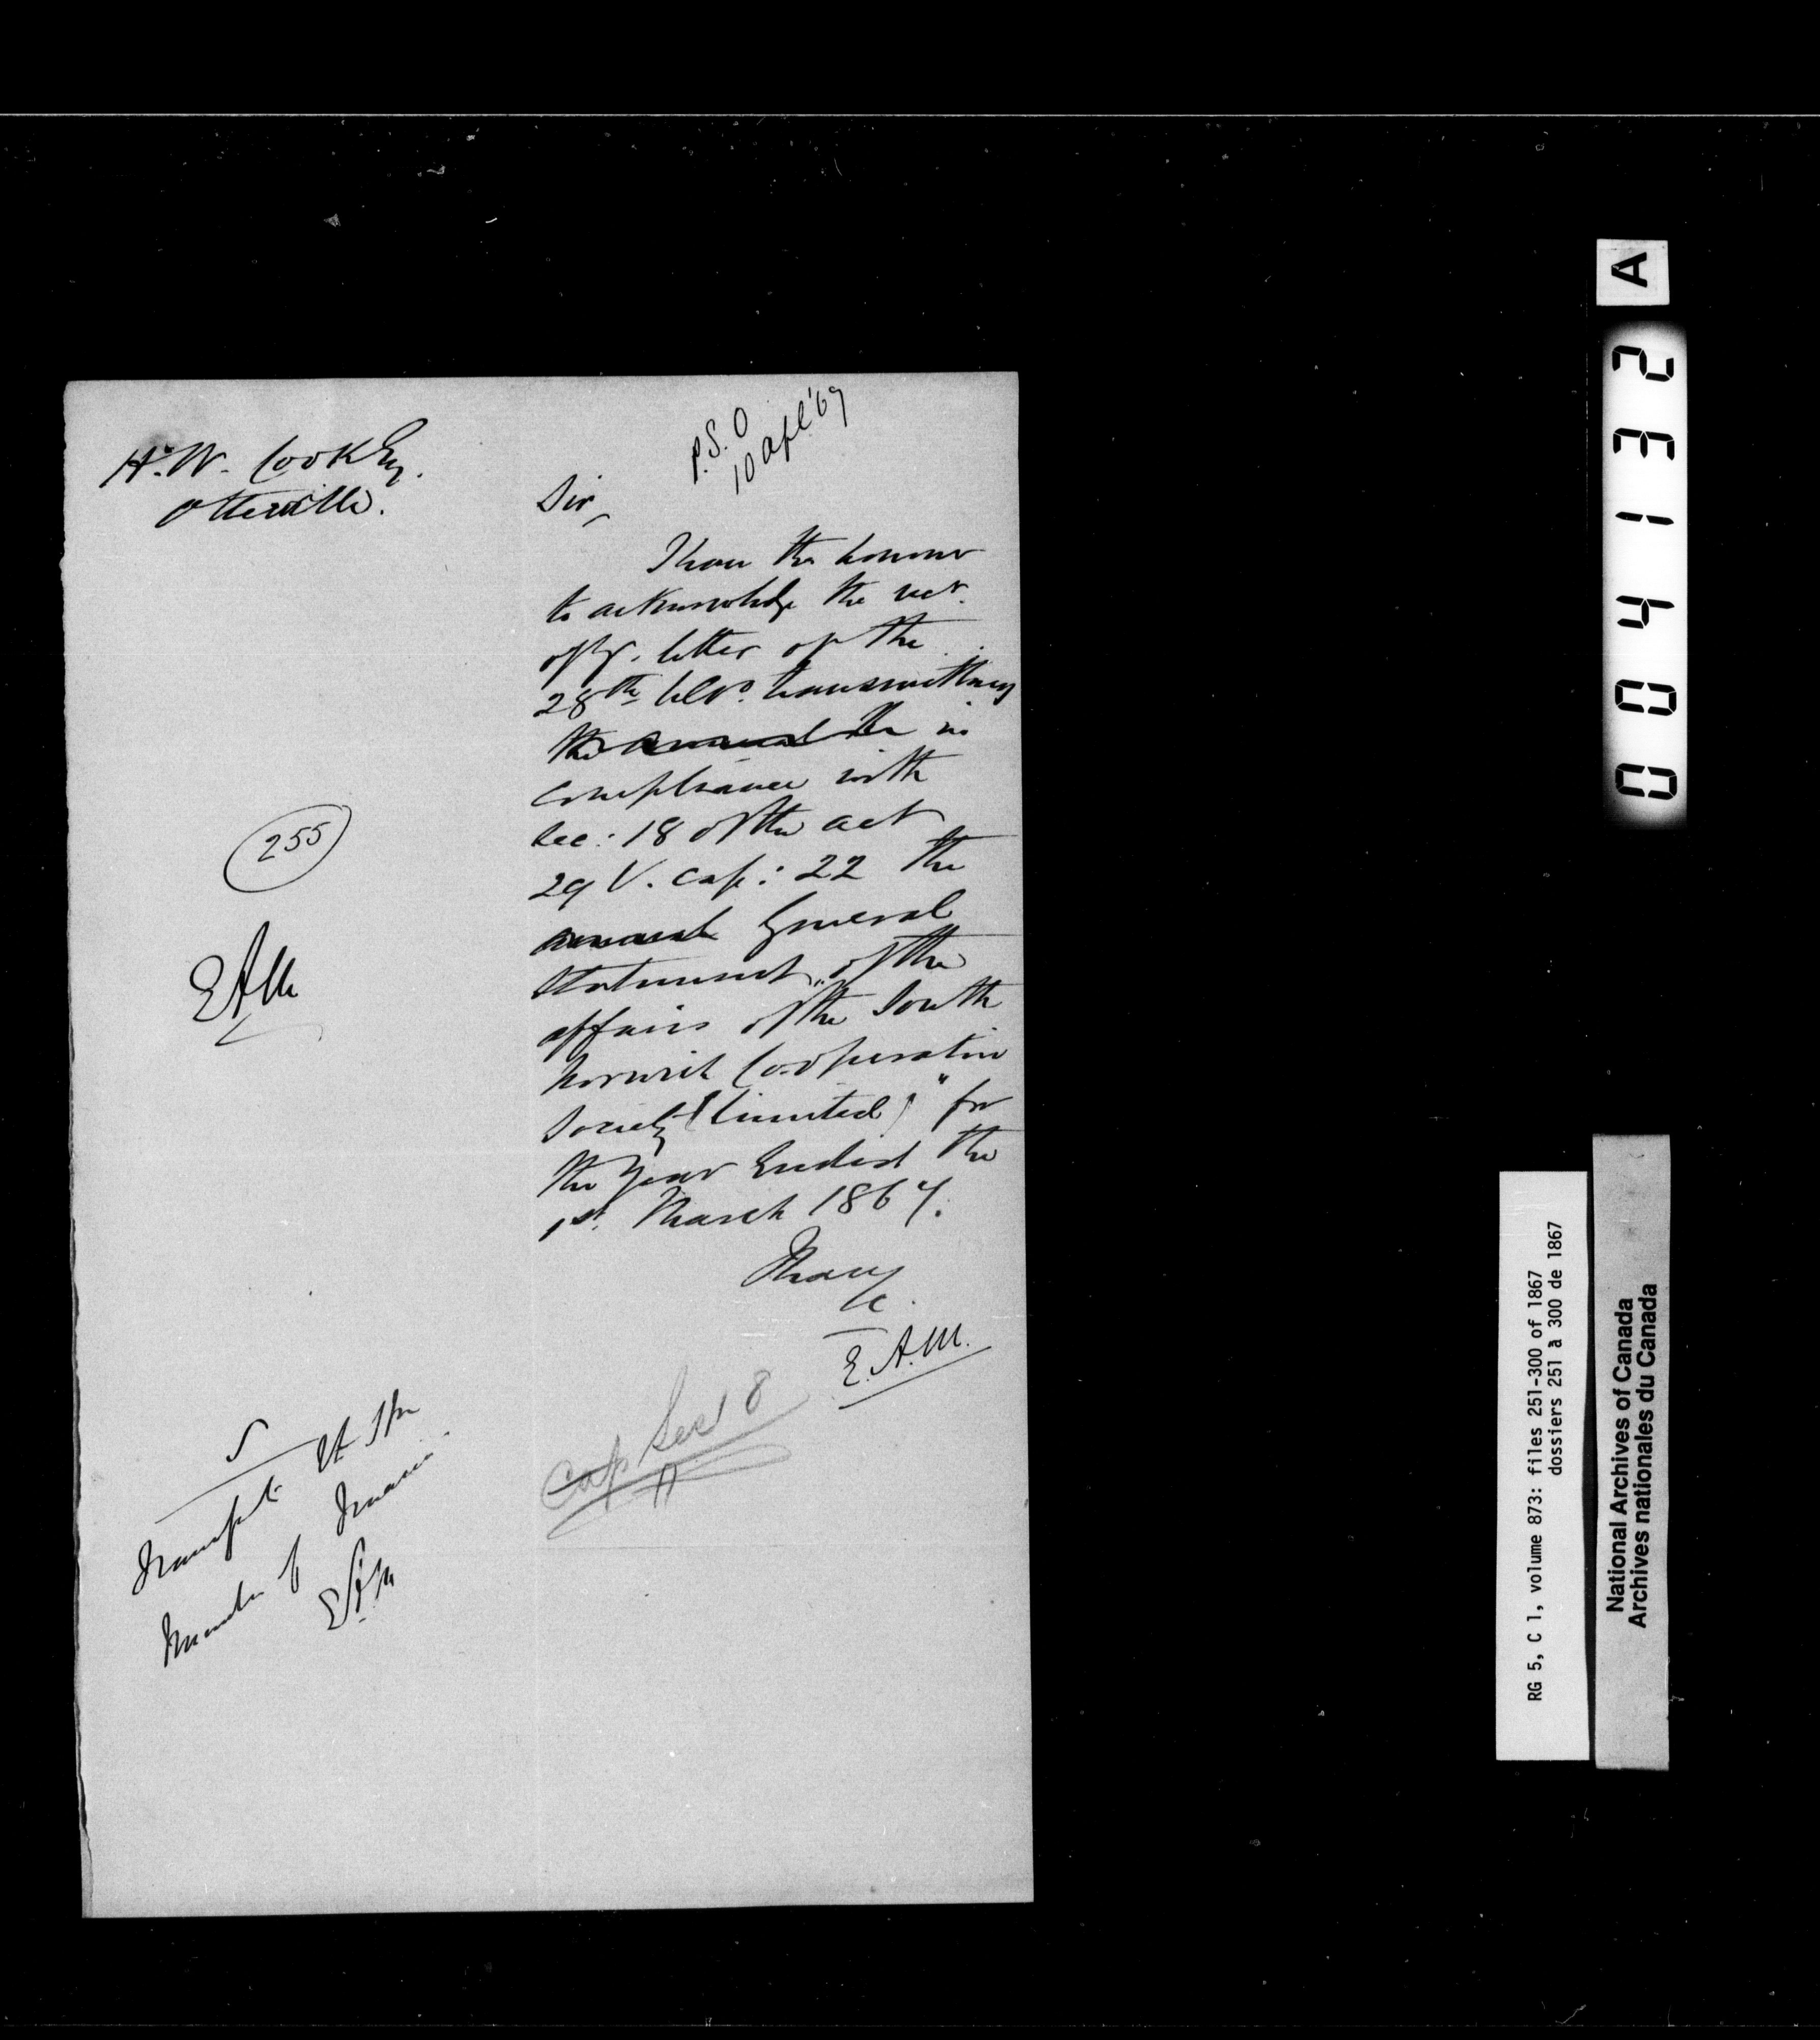 H. W. Cook Esq.
Otterville.
P.S.O
10 Apl '67
Sir,
I have the honour
to acknowledge the rect.
of yr. letter of the
28th ulto. transmitting
the annual the in
compliance with
Sec: 18 of the act
29 V. Cap: 22 the
annual General
Statement "of the
affairs of the South
Norwich Co-operative
Society (Limited)" for
the Year Ended the
1st. March 1867.
I have
&c.
E. A. M.
255
EAM
Cap Sec 18
5
Transfer to
Minister of Finance
EAM
A
004132
RG 5, C 1, volume 873: files 251-300 of 1867
dossiers 251 à 300 de 1867
National Archives of Canada
Archives nationales du Canada